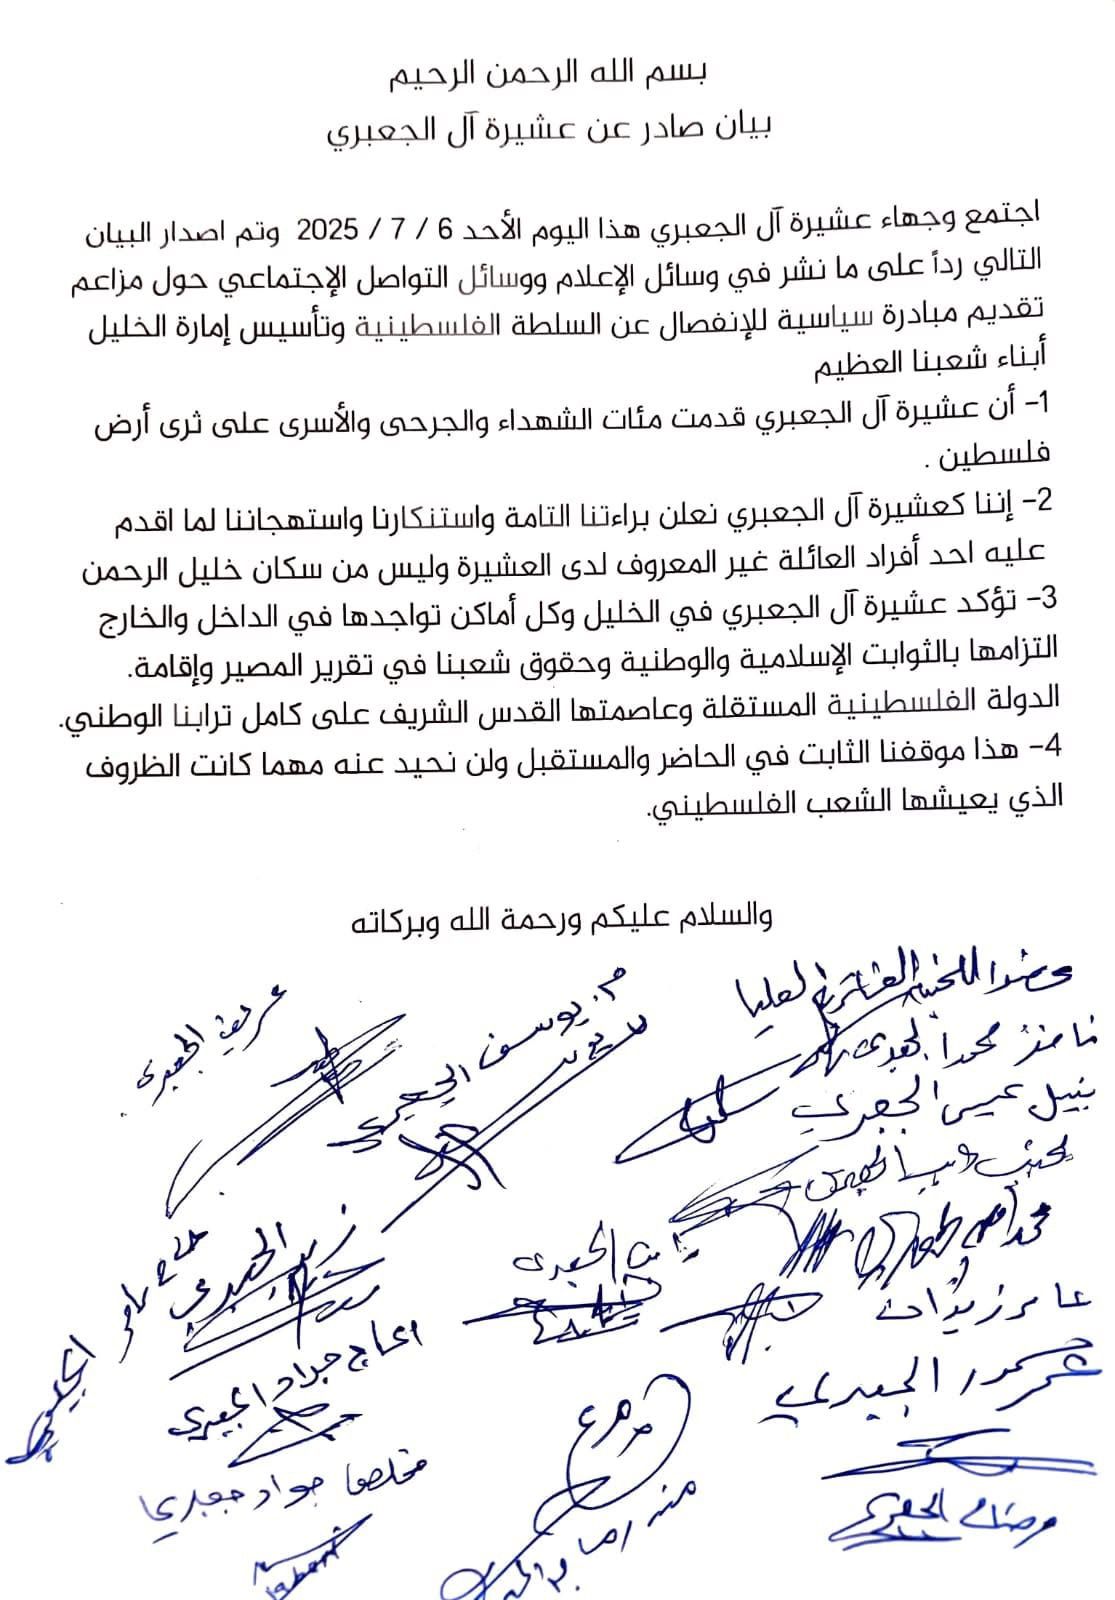 بسم الله الرحمن الرحيم
بيان صادر عن عشيرة آل الجعبري
اجتمع وجهاء عشيرة آل الجعبري هذا اليوم الأحد 6 / 7 / 2025 وتم اصدار البيان
التالي رداً على ما نشر في وسائل الإعلام ووسائل التواصل الإجتماعي حول مزاعم
تقديم مبادرة سياسية للإنفصال عن السلطة الفلسطينية وتأسيس إمارة الخليل
أبناء شعبنا العظيم
1- أن عشيرة آل الجعبري قدمت مئات الشهداء والجرحى والأسرى على ثرى أرض
فلسطين .
2- إننا كعشيرة آل الجعبري نعلن براءتنا التامة واستنكارنا واستهجاننا لما اقدم
عليه احد أفراد العائلة غير المعروف لدى العشيرة وليس من سكان خليل الرحمن
3- تؤكد عشيرة آل الجعبري في الخليل وكل أماكن تواجدها في الداخل والخارج
التزامها بالثوابت الإسلامية والوطنية وحقوق شعبنا في تقرير المصير وإقامة.
الدولة الفلسطينية المستقلة وعاصمتها القدس الشريف على كامل ترابنا الوطني.
4- هذا موقفنا الثابت في الحاضر والمستقبل ولن نحيد عنه مهما كانت الظروف
الذي يعيشها الشعب الفلسطيني.
والسلام عليكم ورحمة الله وبركاته
العليا
م. يوسف الجعبري
نبيل عيسى الجعبري
الجعبري
الحاج جواد الجعبري
الجعبري
جواد جعبري